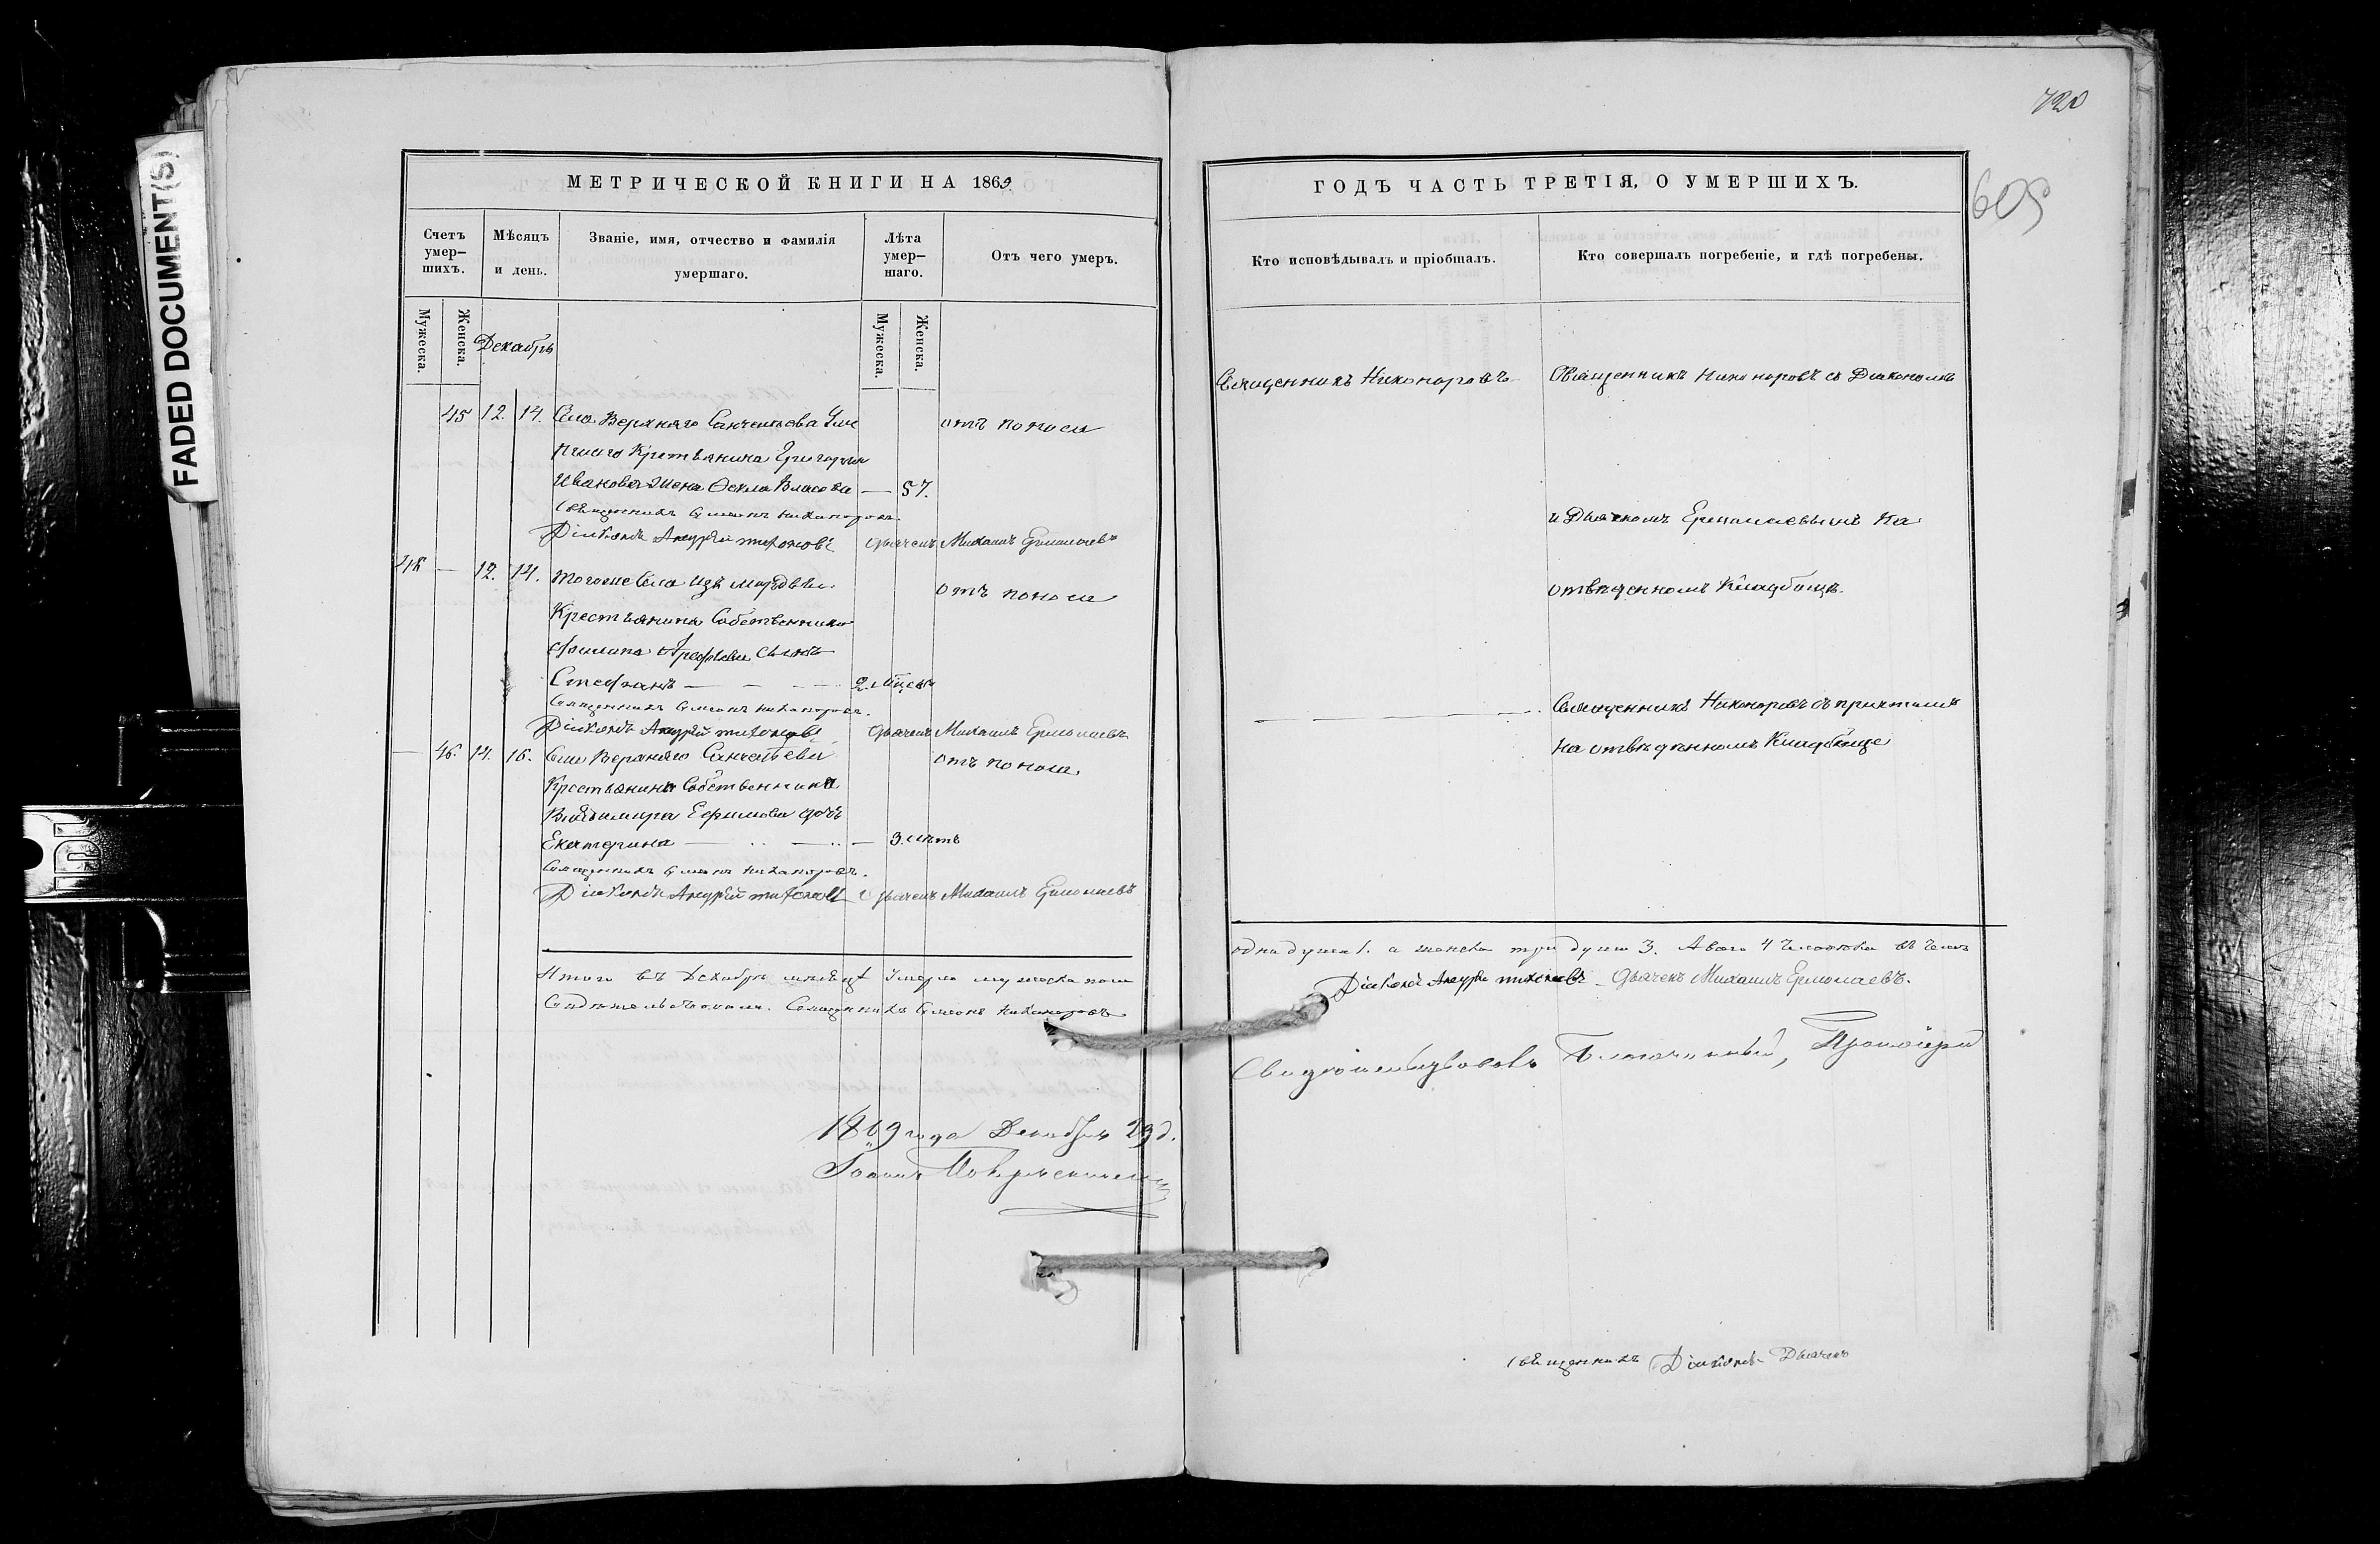 FADED DOCUMENT(S)
720
605
МЕТРИЧЕСКОЙ КНИГИ НА 1869
Счетъ умер-шихъ.
Мѣсяцъ и день.
Званіе, имя, отчество и фамилія умершаго.
Лѣта умер-шаго.
Отъ чего умеръ.
Мужеска.
Женска.
Декабрь
Мужеска.
Женска.
45 12. 14. Села Верхняго Санчелеева
отъ поноса
Крестьянина Григорья
Иванова жена Фекла Власова — 57.
Священникъ Симеонъ Никаноровъ.
Діаконъ Андрей Тихоновъ Дьячекъ Михаилъ Ермолаевъ
46 — 12. 14. Тогоже села изъ мордвы
отъ поноса
Крестьянина Собственника
Филипа Арефьева сынъ
Стефанъ — 2.
Священникъ Симеонъ Никаноровъ.
Діаконъ Андрей Тихоновъ Дьячекъ Михаилъ Ермолаевъ
— 46. 14. 16. Села Верхняго Санчелеева
отъ поноса
Крестьянина Собственника
Владимира Ефимова дочь
Екатерина — 3. лѣтъ
Священникъ Симеонъ Никаноровъ.
Діаконъ Андрей Тихоновъ Дьячекъ Михаилъ Ермолаевъ
Итого въ Декабрѣ мѣсяцѣ умерло мужеска пола
Священникъ Симеонъ Никаноровъ
1869 года Декабря 29 д.
ГОДЪ ЧАСТЬ ТРЕТІЯ, О УМЕРШИХЪ.
Кто исповѣдывалъ и пріобщалъ.
Кто совершалъ погребеніе, и гдѣ погребены.
Священникъ Никоноровъ
Священникъ Никоноровъ съ Діакономъ
и Дьячкомъ Ермолаевымъ на
отведенномъ кладбищѣ.
Священникъ Никоноровъ съ причтомъ
на отведенномъ кладбище
одна душа 1. а женска три души 3. А всего 4 человѣка въ чемъ
Діаконъ Андрей Тихоновъ Дьячекъ Михаилъ Ермолаевъ.
Свидѣтельствовалъ Благочинный, Протоіерей
Священникъ Діаконъ Дьячекъ